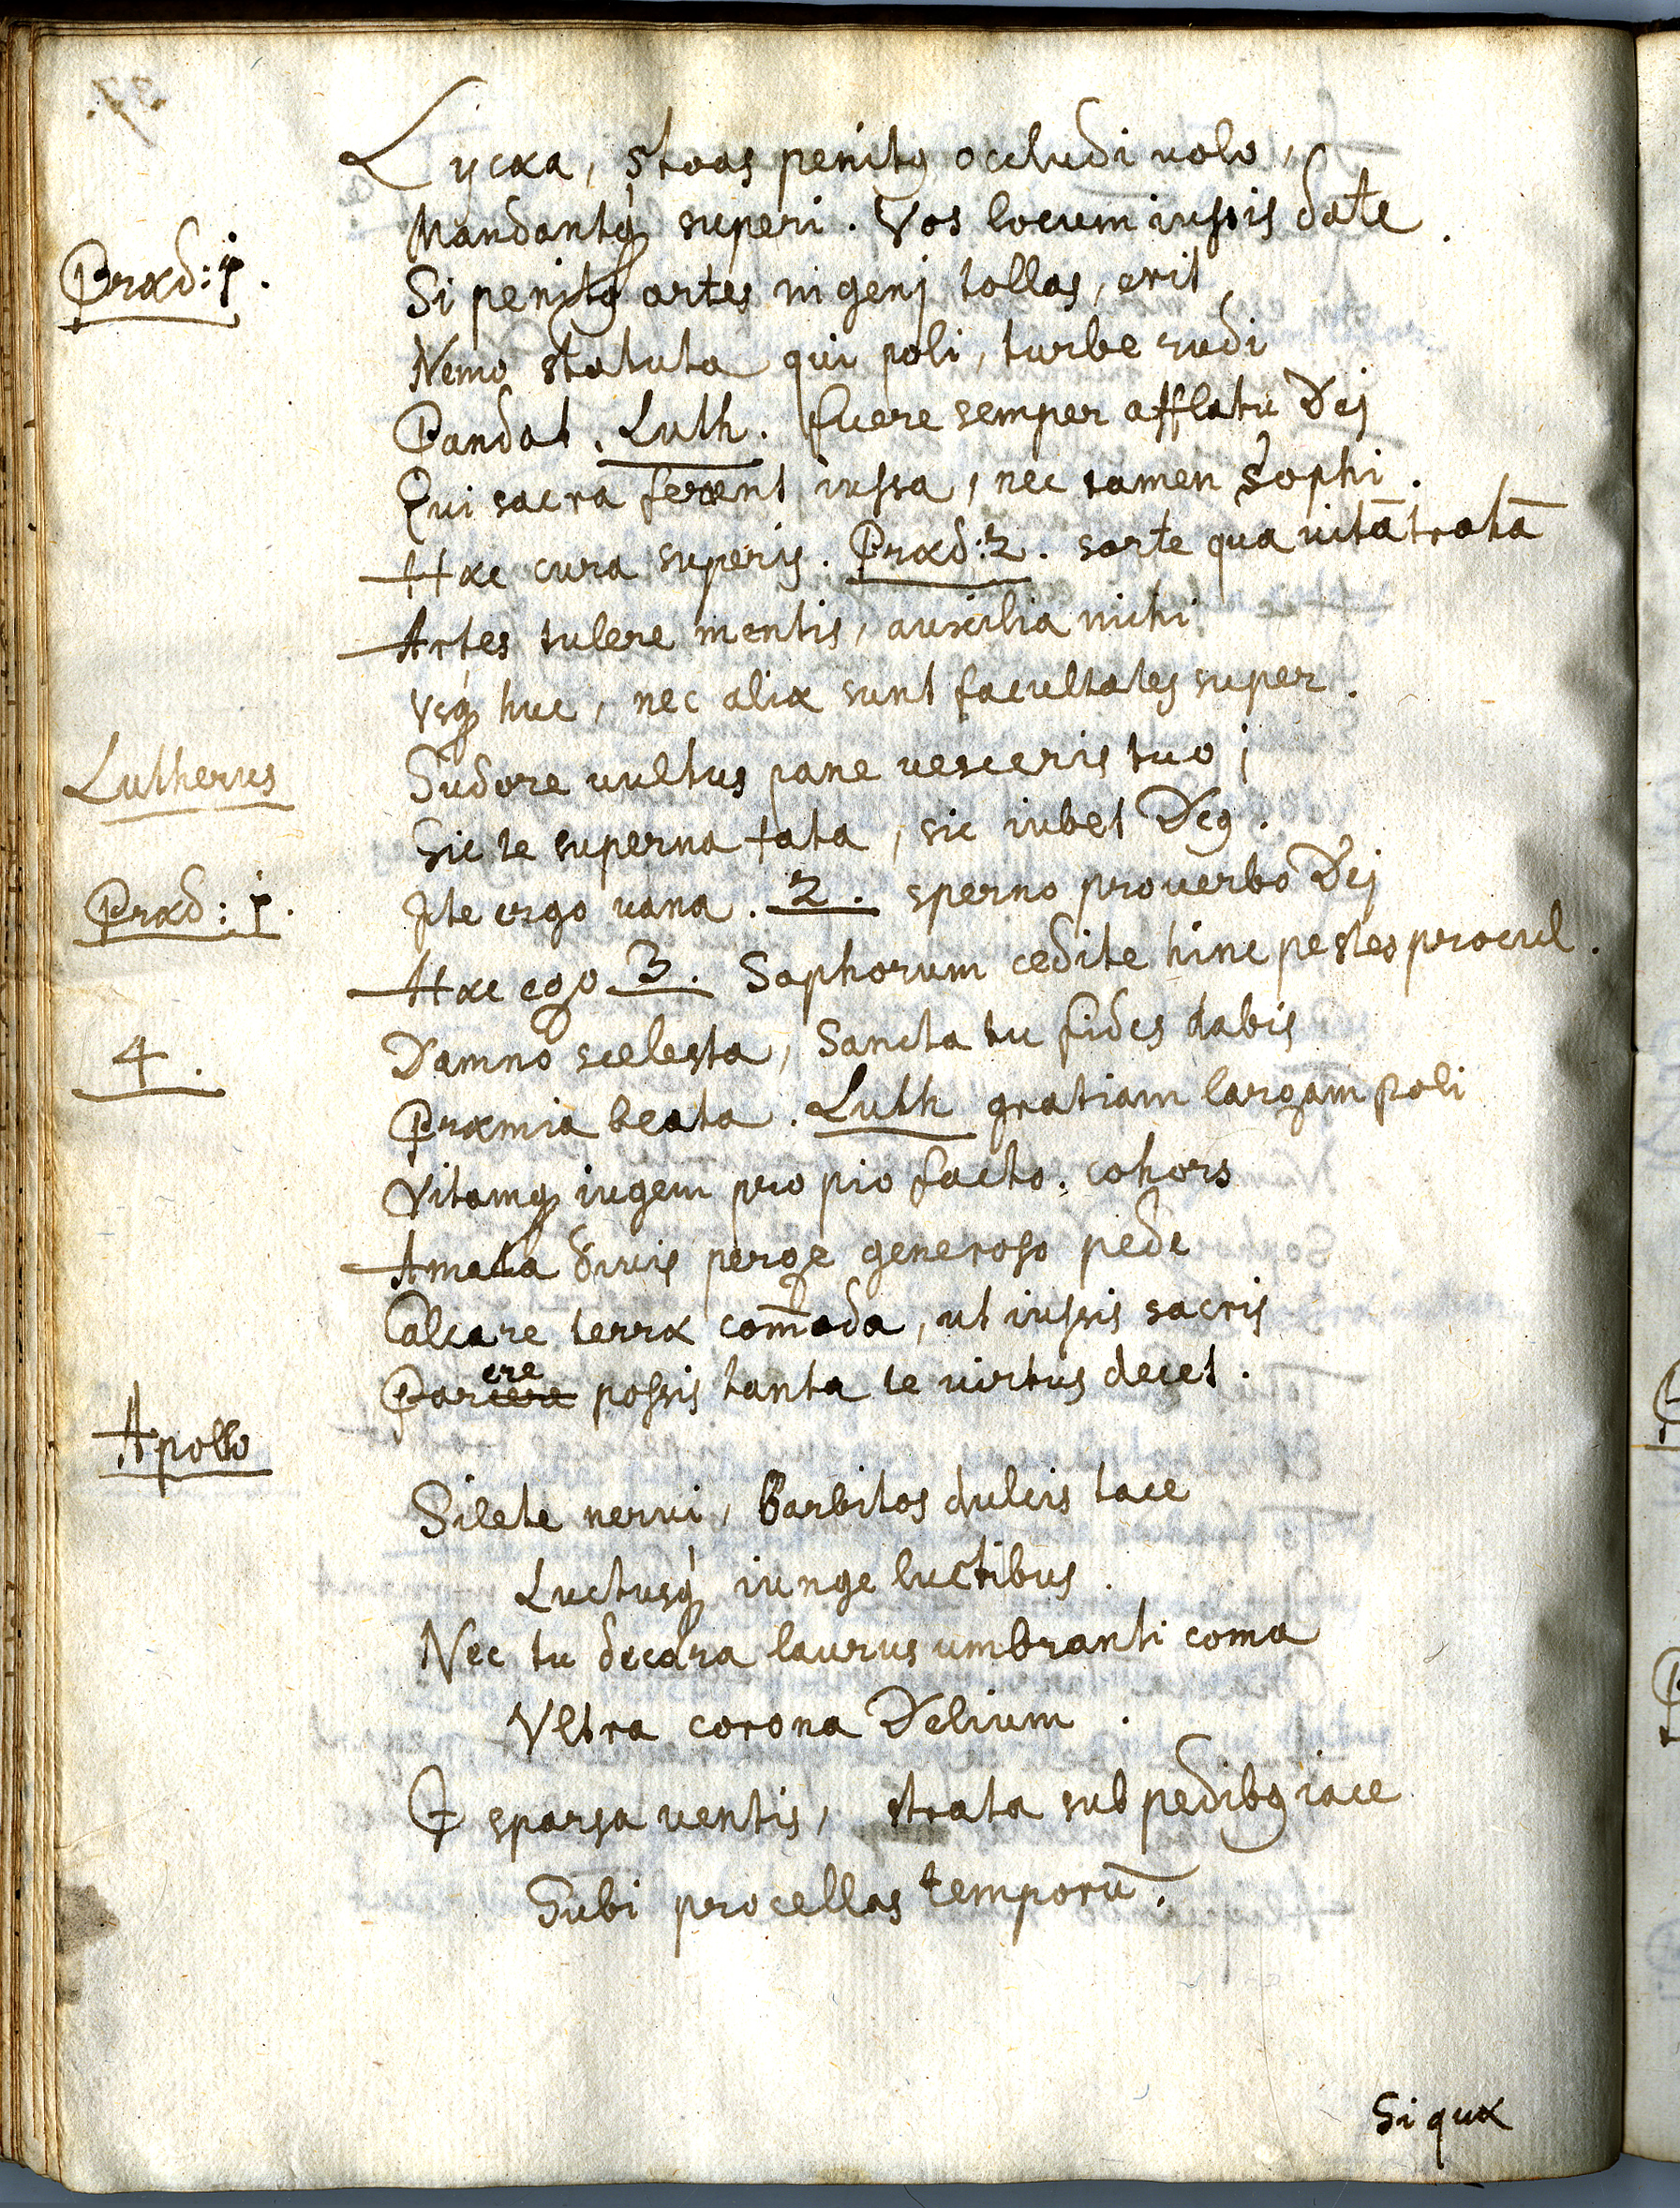 Lycæa, stoas penitꝯ occludi uolo,
Mandantq́ superi. Vos locum iussis date.
Præd: 1.
Si penitꝯ artes ingenj tollas, erit
Nemo statuta qui poli, turbe rudi
Pandat. Luth. fuere semper afflatu Dej
Qui sacra ferent iussa, nec tamen Sophi.
Hæc cura superis. Præd: 2. sorte qua uitā trahā
Artes tulere mentis, auxilia michi
Vsq́ huc, nec aliæ sunt facultates super.
Lutherus
Sudore uultus pane uesceris tuo;
Sic te superna fata, sic iubet Deꝯ.
Præd: 1.
Ite ergo uana. 2. sperno pro uerbo Dej
Hæc ego 3. Sophorum cedite hinc pestes procul.
4.
Damno scelesta, Sancta tu fides dabis
Præmia beata. Luth gratiam largam poli
Vitamq́ iugem pro pio facto. cohors
Amata diuis perge generoso pede
Calcare terræ com̄oda, ut iussis sacris
ere
Parcere possis tanta te uirtus decet.
Apollo
Silete nerui, barbitos dulcis tace
Luctusq́ iunge luctibus.
Nec tu decora laurus umbranti coma
Vltra corona Delium.
O sparsa uentis, strata sub pedibꝯ iace
Subi procellas temporū.
Si quæ